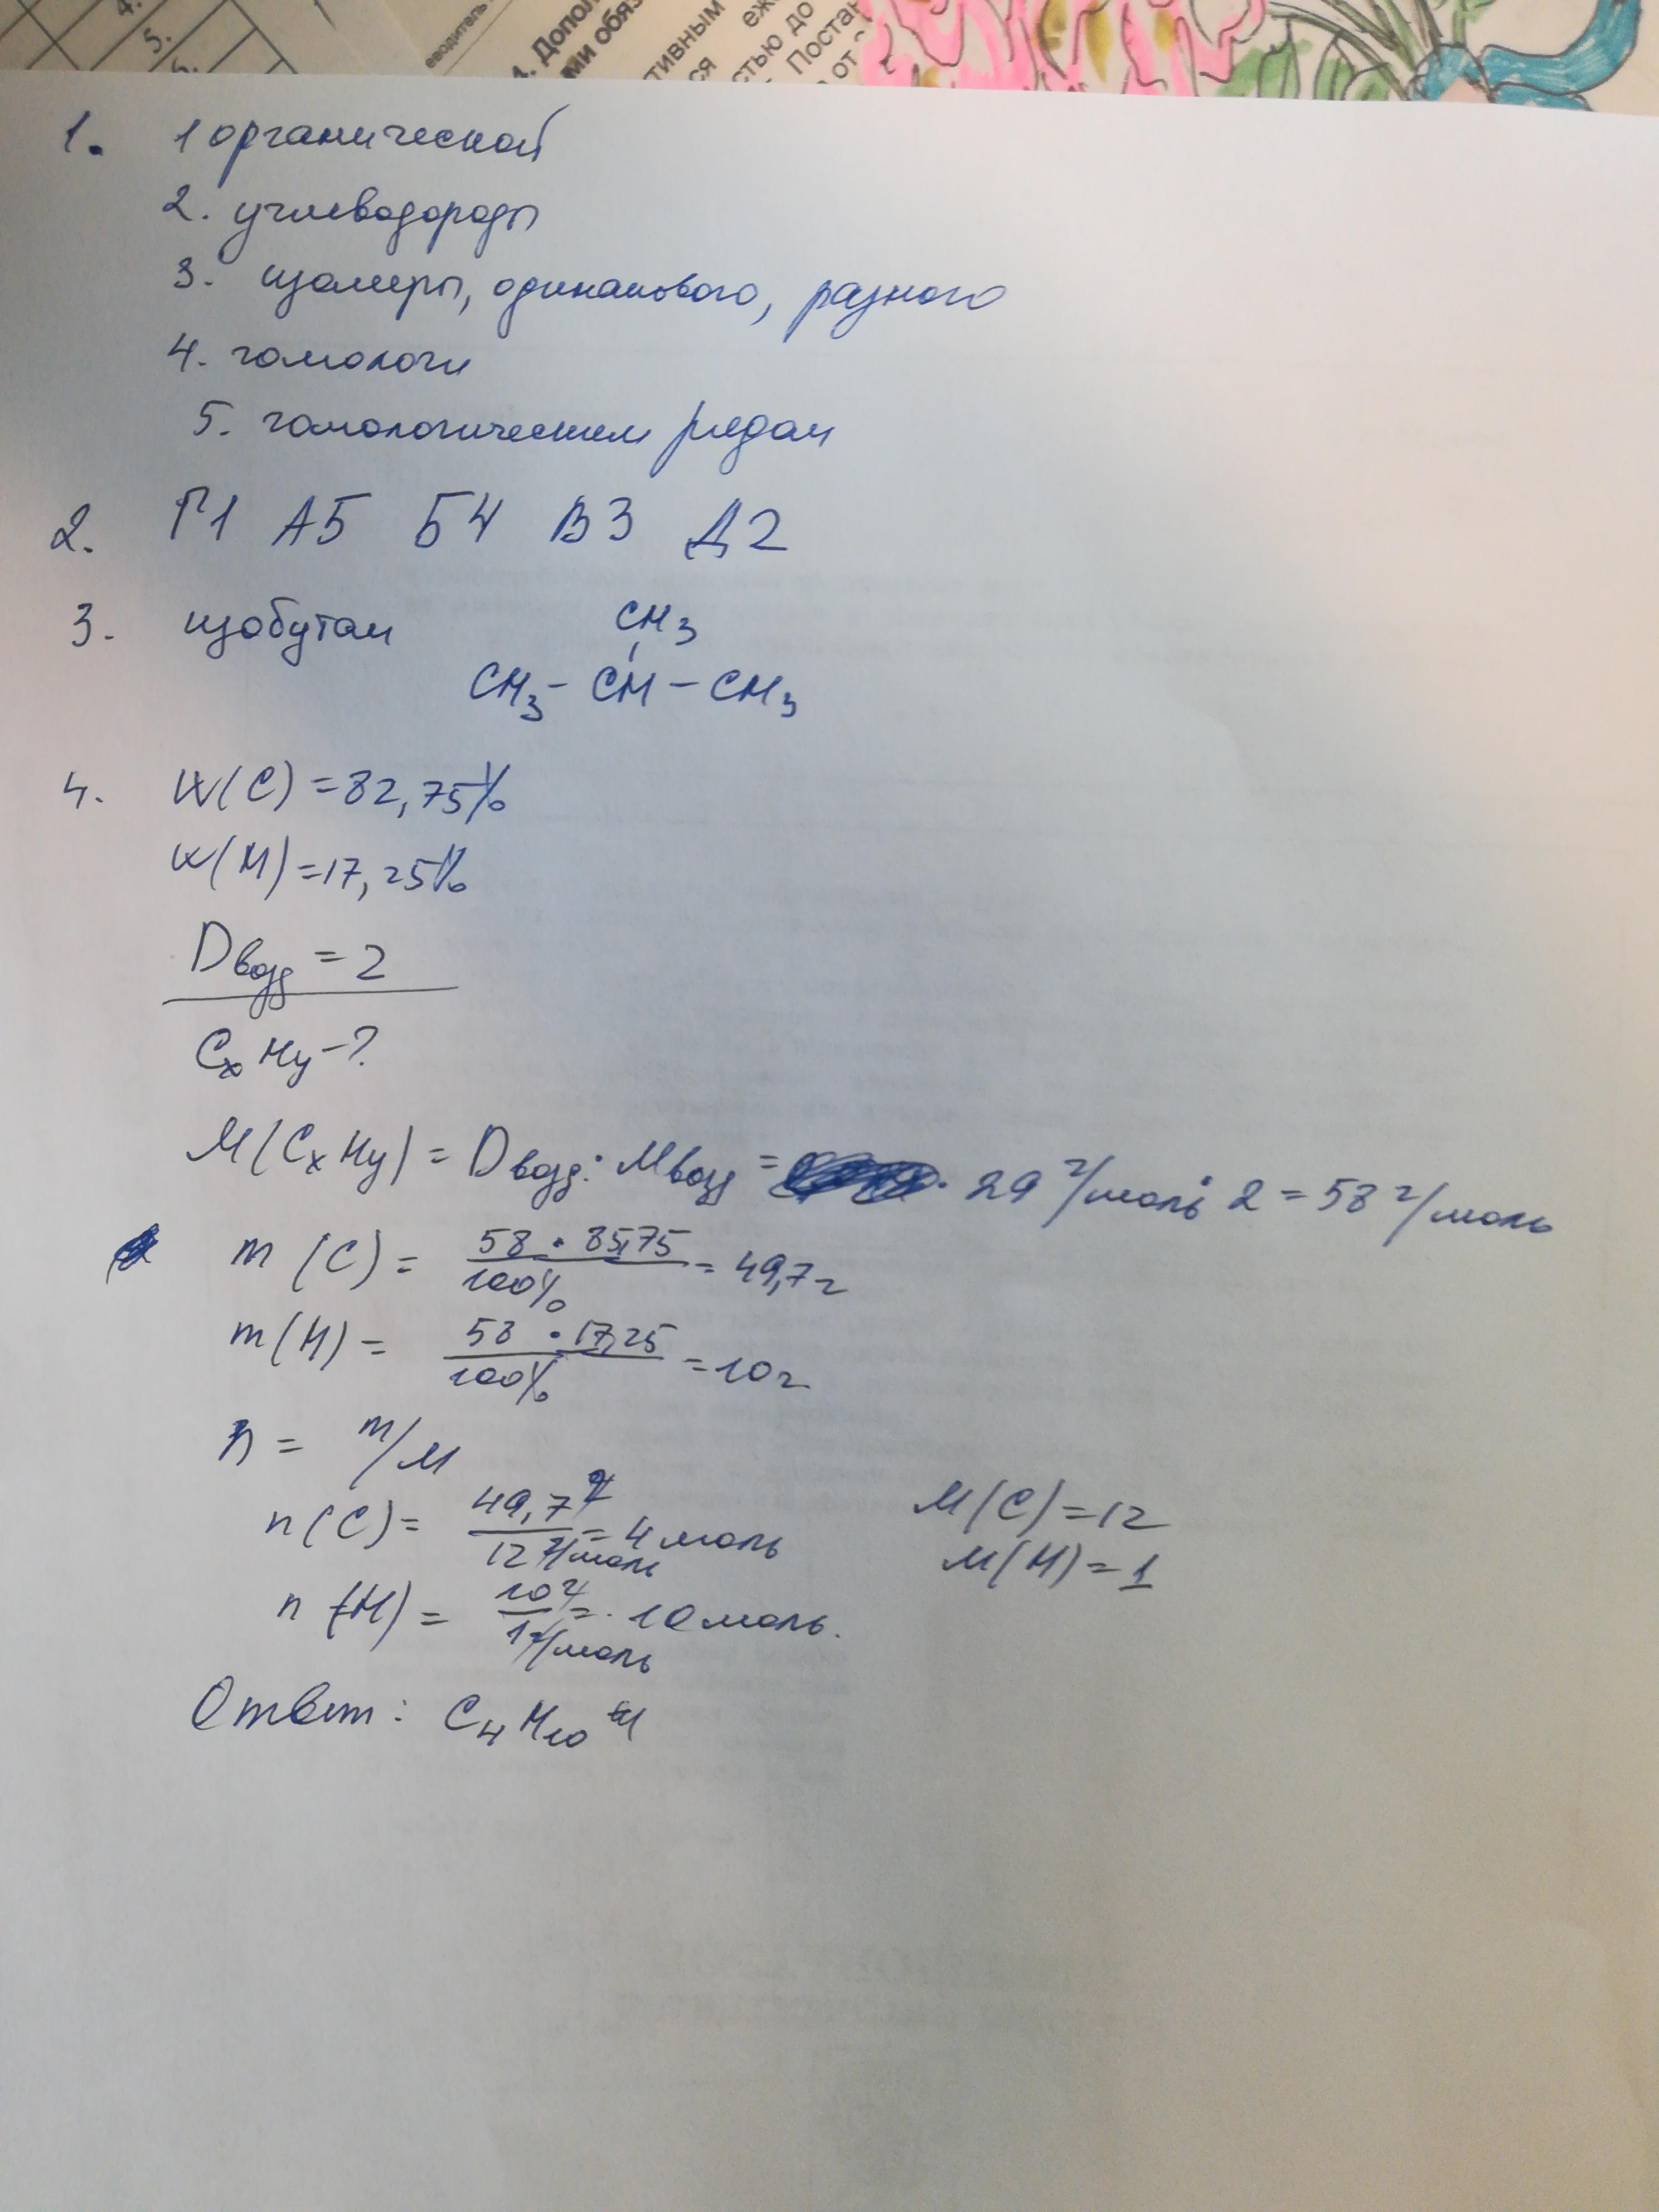 4.
5.
5.
еводитель
4. Допол
ми обяз
тивным
ся
еж
стью до
Постан
от
1. 1 органической
2. углеводороды
3. изомеры, одинакового, разного
4. гомологи
5. гомологическим рядом
2. Г1 А5 Б4 В3 Д2
3. изобутан
CH3
CH3 – CH – CH3
4. W(C) = 82,75%
W(H) = 17,25%
Dвозд = 2
CxHy – ?
M(CxHy) = Dвозд · Mвозд = · 29 г/моль · 2 = 58 г/моль
m(C) = 58 · 85,75 / 100% = 49,7 г
m(H) = 58 · 17,25 / 100% = 10 г
n = m/M
n(C) = 49,7 г / 12 г/моль = 4 моль
M(C) = 12
M(H) = 1
n(H) = 10 г / 1 г/моль = 10 моль.
Ответ: C4H10